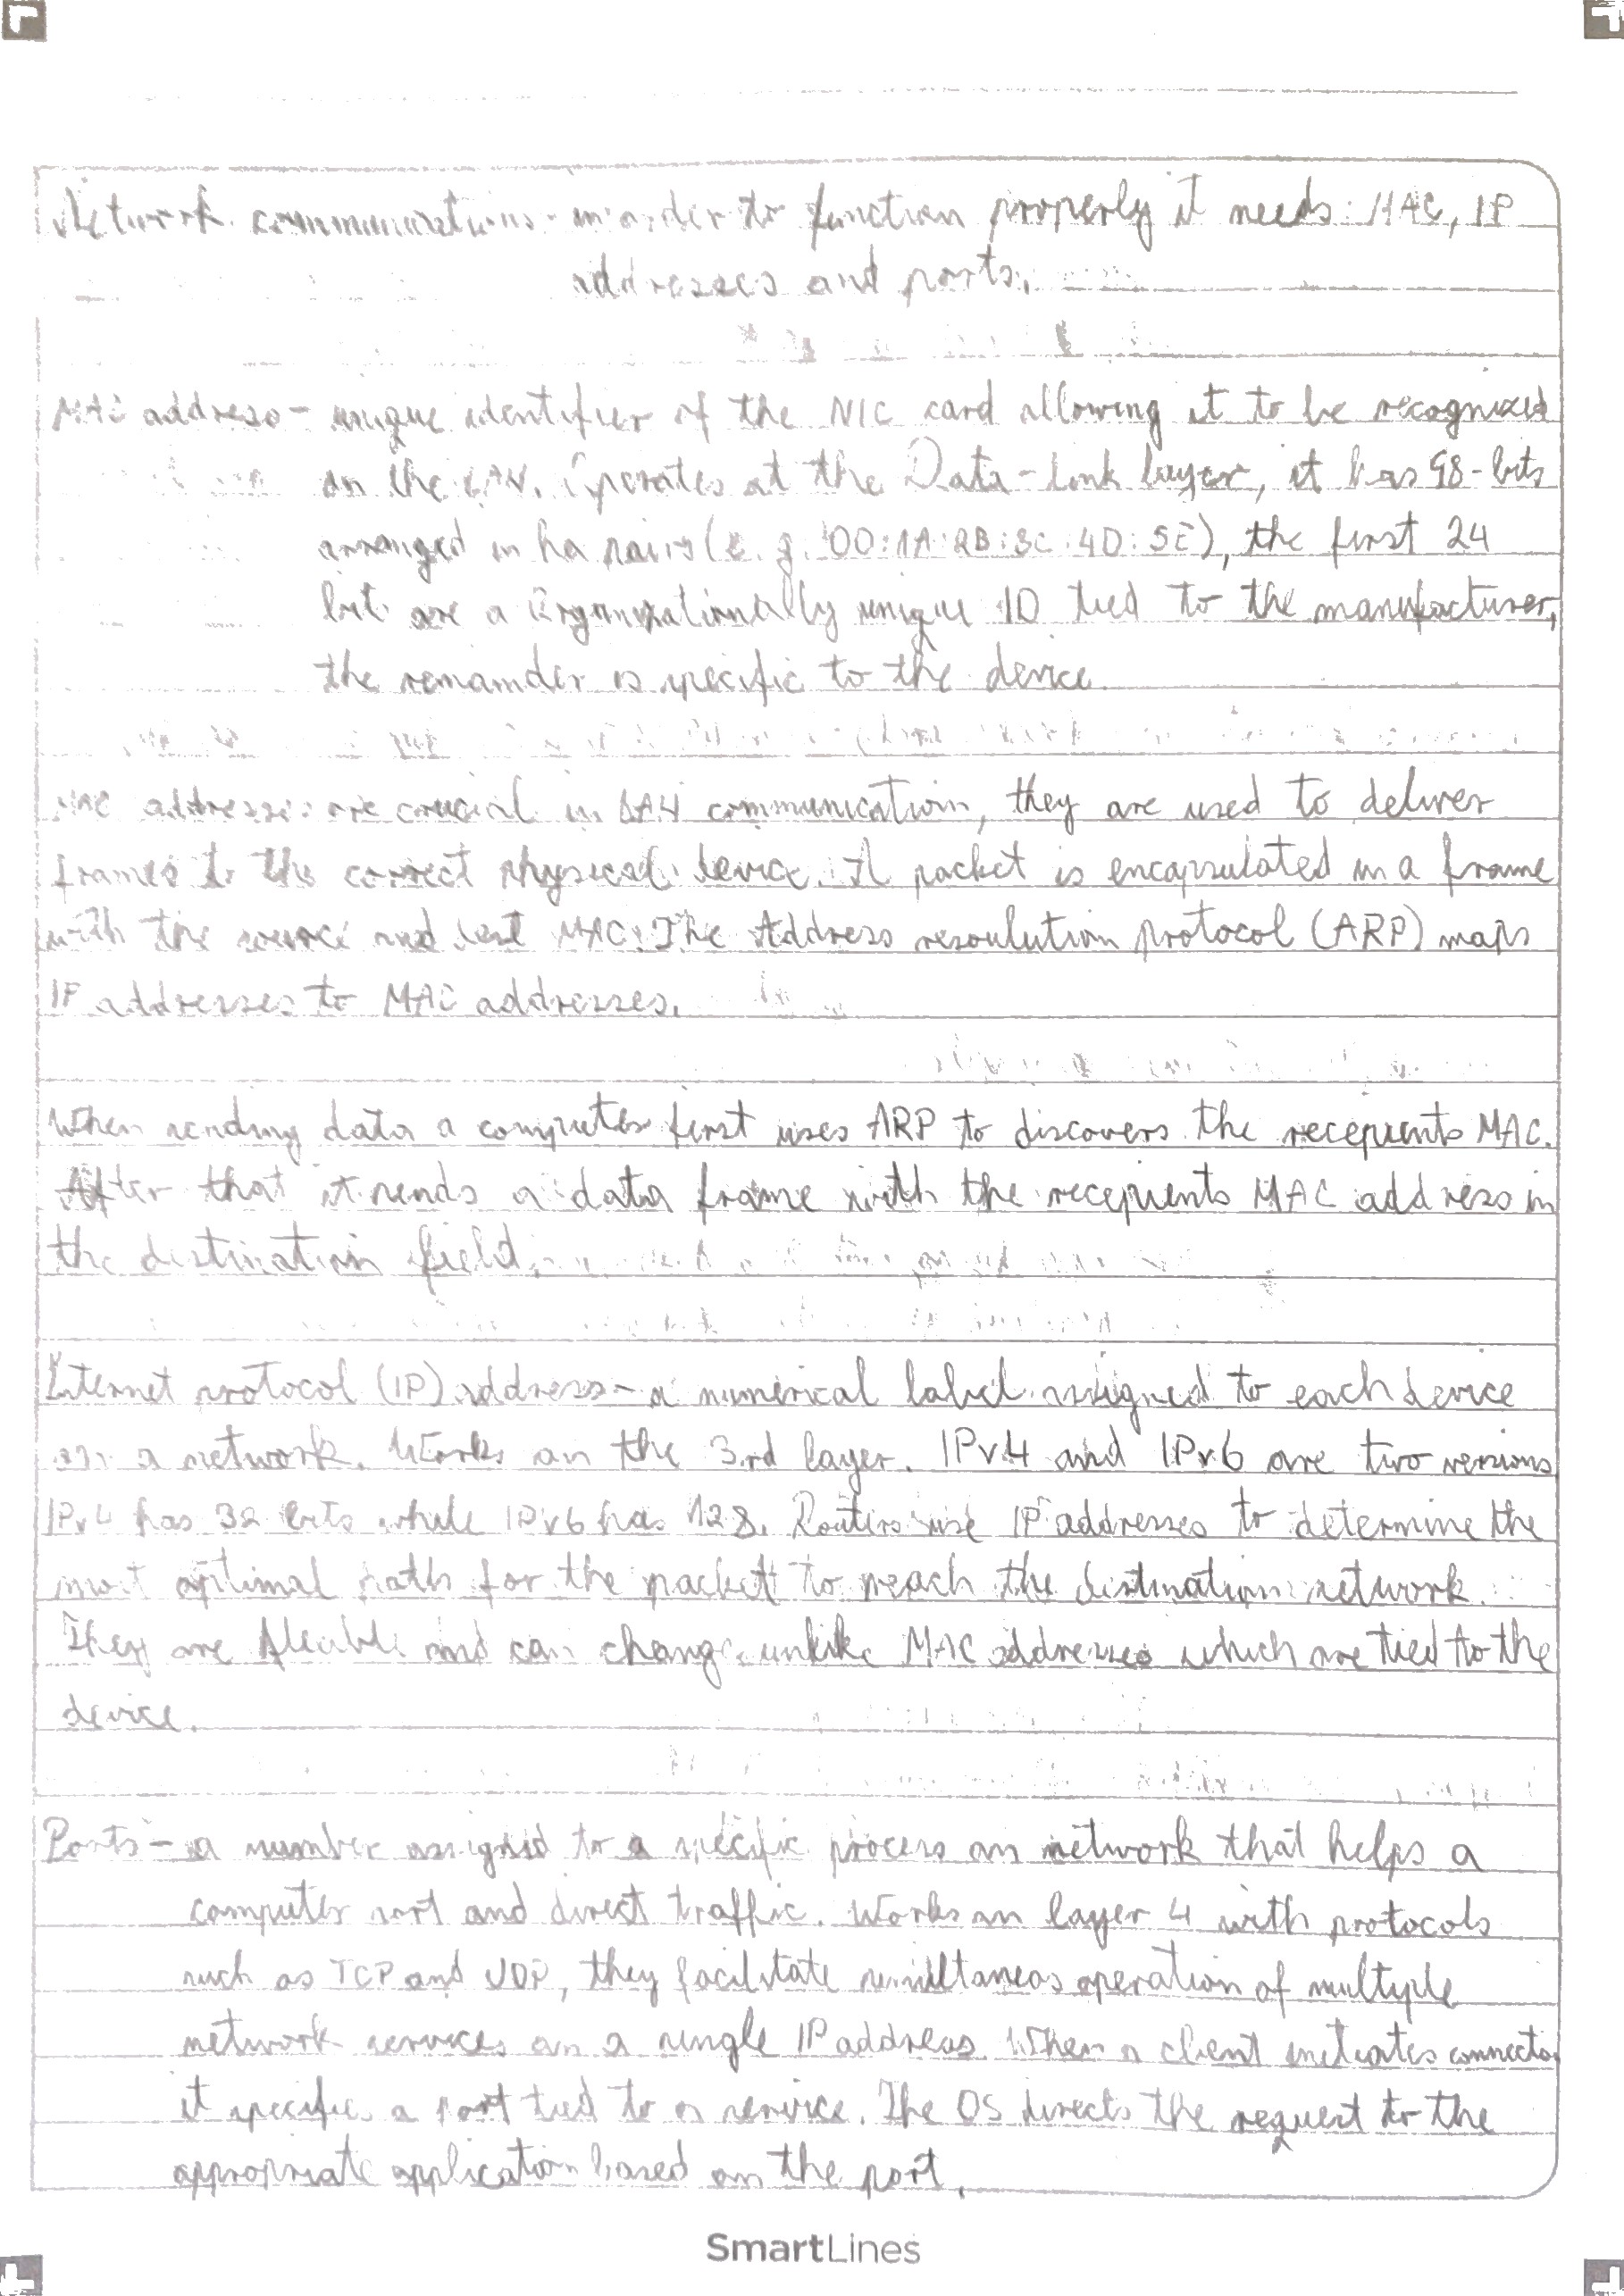 Network communications - in order to function properly it needs: MAC, IP
addresses and ports.
MAC address - unique identifier of the NIC card allowing it to be recognized
on the LAN. Operates at the Data-link layer, it has 48-bits
arranged in hex pairs (e.g. 00:1A:2B:3C:4D:5E), the first 24
bits are a Organizationally unique ID tied to the manufacturer,
the remainder is specific to the device.
MAC addresses are crucial in LAN communication, they are used to deliver
frames to the correct physical device. A packet is encapsulated in a frame
with the source and dest MAC. The Address resoulution protocol (ARP) maps
IP addresses to MAC addresses.
When sending data a computer first uses ARP to discovers the recepients MAC.
After that it sends a data frame with the recepients MAC address in
the destination field.
Internet protocol (IP) address - a numerical label assigned to each device
on a network. Works on the 3rd layer. IPv4 and IPv6 are two versions
IPv4 has 32 bits while IPv6 has 128. Routers use IP addresses to determine the
most optimal path for the packet to reach the destination network.
They are flexible and can change unlike MAC addresses which are tied to the
device.
Ports - a number assigned to a specific process on network that helps a
computer sort and direct traffic. Works on layer 4 with protocols
such as TCP and UDP, they facilitate simultaneos operation of multiple
network services on a single IP address. When a client initiates
it specifies a port tied to a service. The OS directs the request to the
appropriate application based on the port.
SmartLines